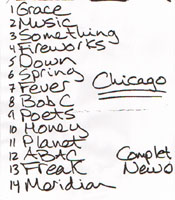 1 Grace
2 Music
3 Something
4 Fireworks
5 Down
6 Spring
Chicago
7 Fever
8 Bob C
9 Poets
10 Honey
11 Planet
12 ABAC
Complet
13 Freak
News
14 Meridian